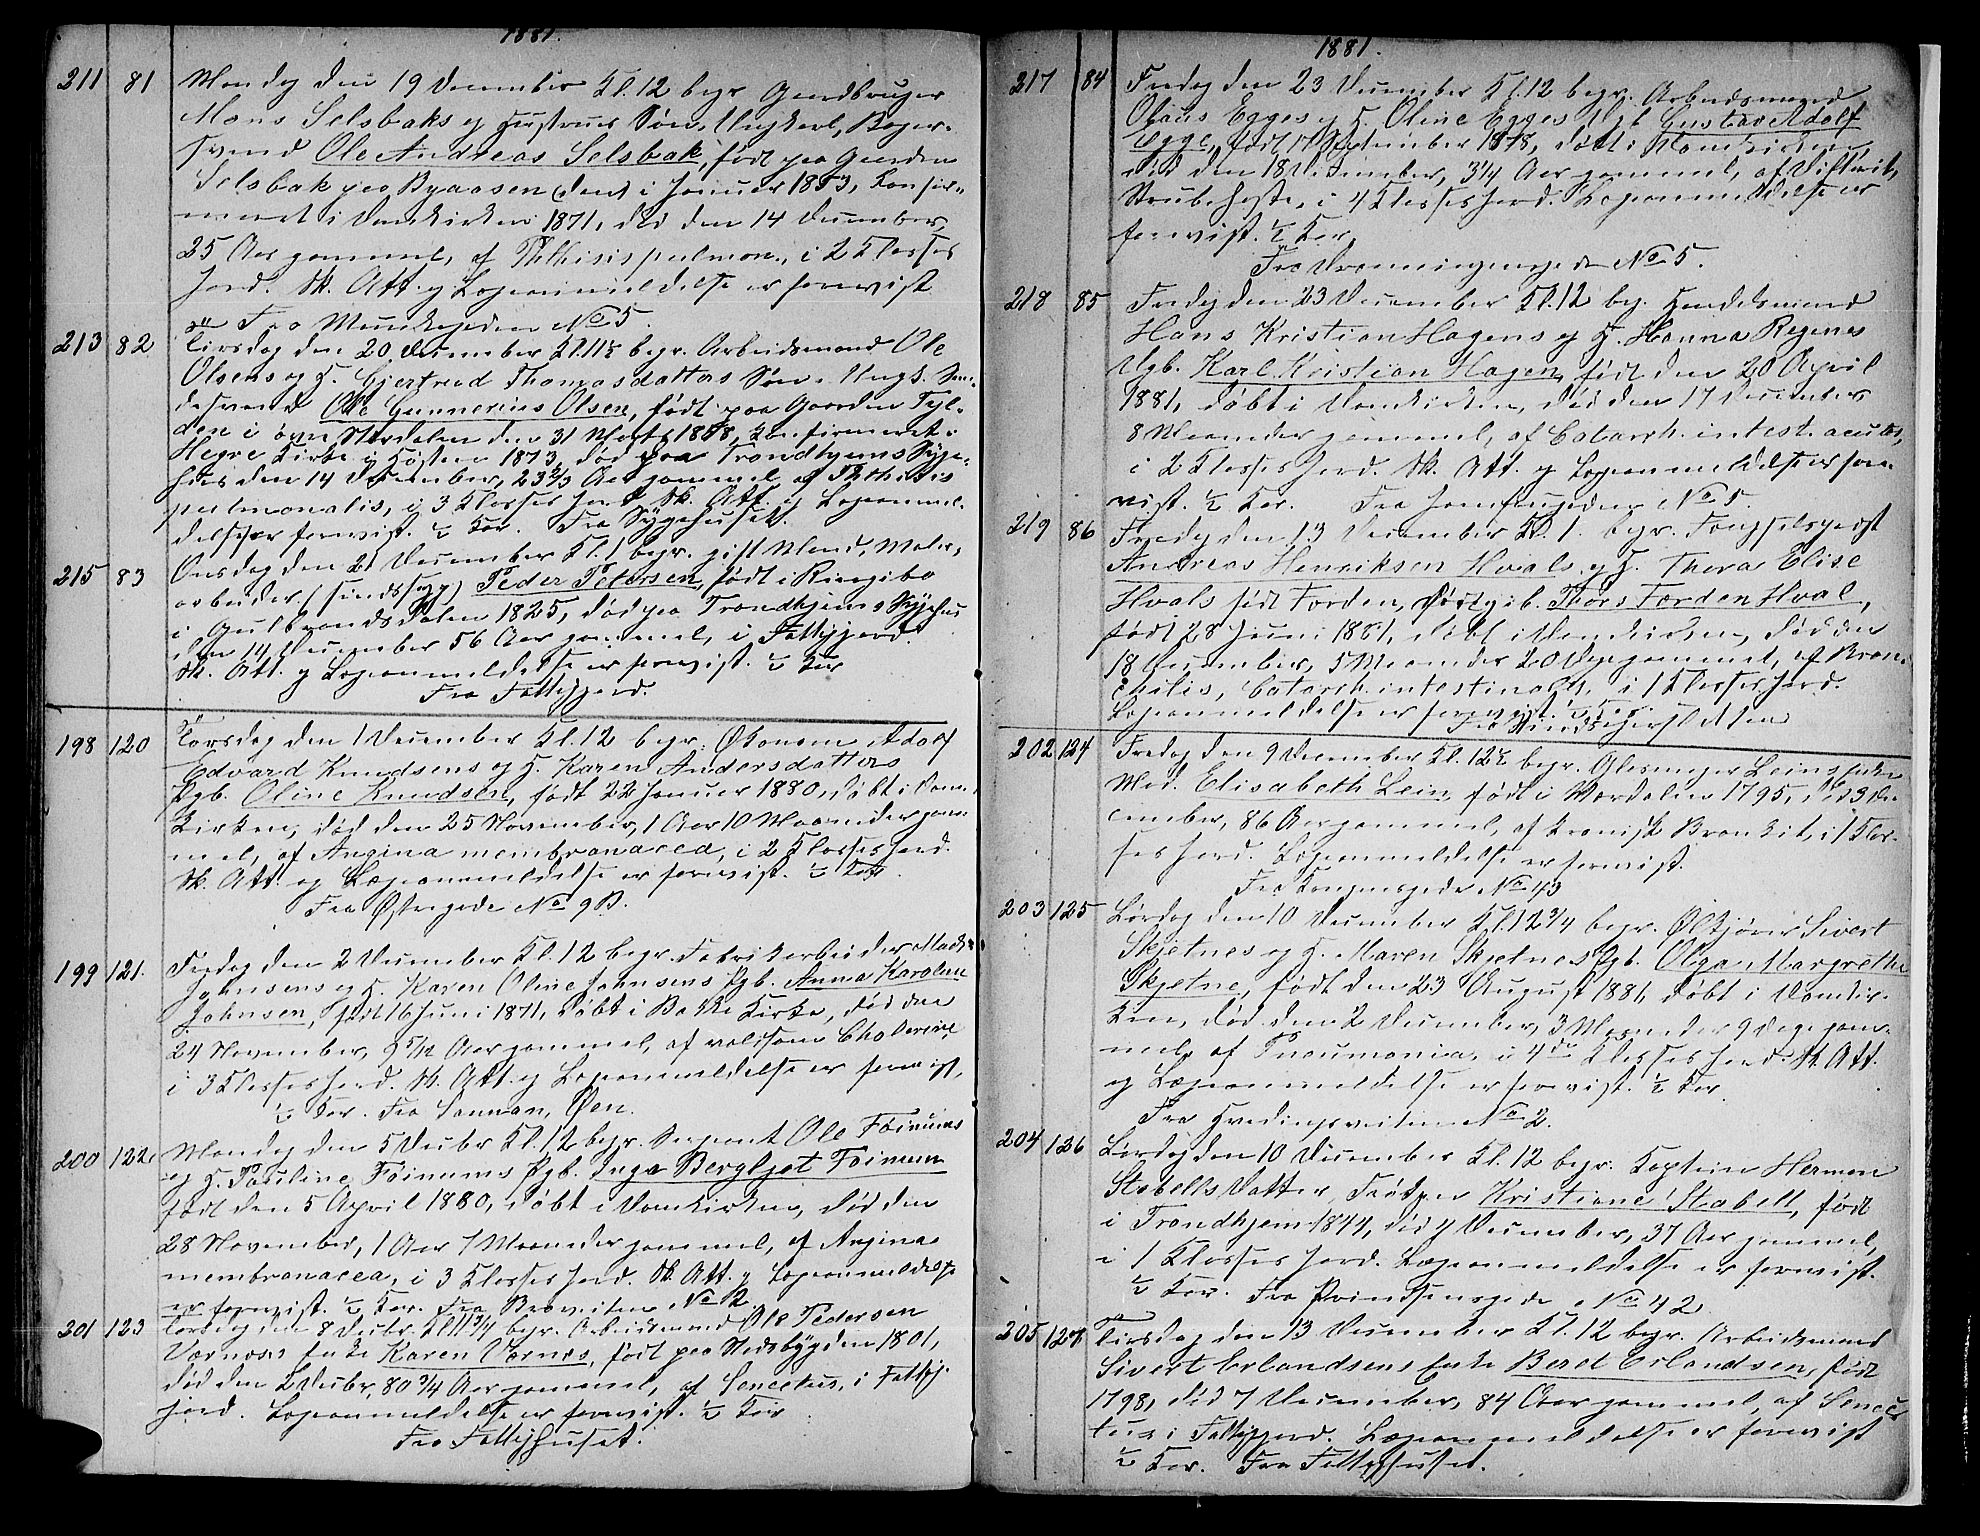 1881.
211 81 Mandag den 19 December Kl. 12 begr. Gaardbruger
Mons Selsbaks og Hustrues Søn, Ungkarl, Bager-
svend Ole Andreas Selsbak, født paa Gaarden
Selsbak paa Byaasen (den) i Januar 1853, Konfir-
meret i Domkirken 1871, død den 14 December,
25 Aar gammel, af Phthisis pulmon., i 2 Klasses
Jord. Sk. Att. og Lægeanmeldelse er forevist
Fra Munkegaden No 5.
213 82 Tirsdag den 20 December Kl. 11½ begr. Arbeidsmand Ole
Olsens og H. Gjertrud Thomasdatters Søn, Ungk.
Ole Gunnerius Olsen, født paa Gaarden Fyl-
den i øvre Stordalen den 31 Marts 1858, Konfirmeret i
Hegre Kirke i Høsten 1873, død paa Trondhjems Syge-
hus den 14 December, 23 2/3 Aar gammel, af Phthisis
pulmonalis, i 3 Klasses Jord. Sk. Att. og Lægeanmel-
delse er forevist. ½ Kor. Fra Sygehuset.
215 83 Onsdag den 21 December Kl. 1 begr. gift Mand, Maler-
arbeider (sindssyg) Peder Petersen, født i Ringibo
i Gulbrandsdalen 1825, død paa Trondhjems Sygehus
den 14 December 56 Aar gammel, i Fattigjord.
Sk. Att. og Lægeanmeldelse er forevist. ½ Kor
Fra Fattiggaard.
198 120 Torsdag den 1 December Kl. 12 begr. Økonom Adolf
Edvard Knudsens og H. Karen Andersdatters
Pgb. Oline Knudsen, født 22 Januar 1880, døbt i Dom-
kirken, død den 25 November, 1 Aar 10 Maaneder gam-
mel, af Angina membranacea, i 2 Klasses Jord.
Sk. Att. og Lægeanmeldelse er forevist. ½ Kor.
Fra Østregade No 9 B.
199 121. Fredag den 2 December Kl. 12 begr. Fabrikarbeider Mads
Johnsens og H. Karen Oline Johnsens Pgb. Anna Karoline
Johnsen, født 16 Juni 1871, døbt i Bakke Kirke, død den
24 November, 9 5/12 Aar gammel, af voldsom Cholerine
i 3 Klasses Jord. Sk. Att. og Lægeanmeldelse er forevist.
½ Kor. Fra Sannan, Øen.
200 122. Mandag den 5 Decbr Kl. 12 begr. Sergeant Ole Foinums
og H. Pauline Foinums Pgb. Inga Bergljot Foinum
født den 5 April 1880, døbt i Domkirken, død den
28 November, 1 Aar 7 Maaneder gammel, af Angina
membranacea, i 3 Klasses Jord. Sk. Att. og Lægeanmeldelse
er forevist. ½ Kor. Fra No 12.
201 123 Torsdag den 8 Decbr. Kl. 11 3/4 begr. Arbeidsmand Ole Pedersen
Værnæs Enke Karen Værnes, født paa Stadsbygden 1801,
død den 2 Decbr, 80 3/4 Aar gammel, af Senectus, i Fattig-
jord. Lægeanmeldelse er forevist. ½ Kor
Fra Fattighuset.
1881.
217 84 Fredag den 23 December Kl. 12 begr. Arbeidsmand
Olaus Egges og H. Oline Egges Ugb. Gustav Adolf
Egge, født 17 September 1878, døbt i Domkirken
død den 18 December, 3 1/4 Aar gammel, af Difterit,
Strubehoste, i 4 Klasses Jord. Lægeanmeldelse er
forevist. ½ Kor.
Fra Dronningensgade No 5.
218 85 Fredag den 23 December Kl. 12 beg. Handelsmand
Hans Kristian Hagens og H. Hanna Regines
Ugb. Karl Kristian Hagen, født den 20 April
1881, døbt i Domkirken, død den 17 December,
8 Maaneder gammel, af Catarrh. intest. acutus,
i 2 Klasses Jord. Sk. Att. og Lægeanmeldelse er fore-
vist. ½ Kor. Fra Jomfrugaden No 5.
219 86 Fredag den 23 December Kl. 1. begr. Fængselspræst
Andreas Henriksen Hvals og H. Thora Elise
Hvals født Forden, Pgb. Thors Forden Hval,
født 28 Juni 1881, døbt i Domkirken, død den
18 December, 5 Maaneder 20 Dage gammel, af Bron-
chitis, Catarrh. intestinalis, i 1 Klasses Jord.
Lægeanmeldelse er forevist. ½ Kor.
Fra
202 124 Fredag den 9 December Kl. 12½ begr. Glasmager Leins Enke
Mad. Elisabeth Lein, født i Værdalen 1795, død 3 De-
cember, 86 Aar gammel, af kronisk Bronkit, i 1 Klas-
ses Jord. Lægeanmeldelse er forevist.
Fra Kongensgade No 43
203 125 Lørdag den 10 December Kl. 12 3/4 begr. Ølkjører Sivert
Skjetnes og H. Maren Skjetnes Pgb. Olga Margrethe
Skjetne, født den 23 August 1881, døbt i Domkir-
ken, død den 2 December, 3 Maaneder 9 Dage gam-
mel, af Pneumonia, i 4de Klasses Jord. Sk. Att.
og Lægeanmeldelse er forevist. ½ Kor.
Fra Hvedingsveiten No 2.
204 126 Lørdag den 10 December Kl. 12 begr. Kaptein Herman
Stabells Datter, Frøken Kristiane Stabell, født
i Trondhjem 1844, død 4 December, 37 Aar gammel,
i 1 Klasses Jord. Lægeanmeldelse er forevist.
½ Kor. Fra Prindsensgade No 42.
205 127 Tirsdag den 13 December Kl. 12 begr. Arbeidsmand
Sivert Erlandsens Enke Beret Erlandsen, født
1798, død 7 December, 84 Aar gammel, af Senec-
tus i Fattigjord. Lægeanmeldelse er forevist
½ Kor. Fra Fattighuset.